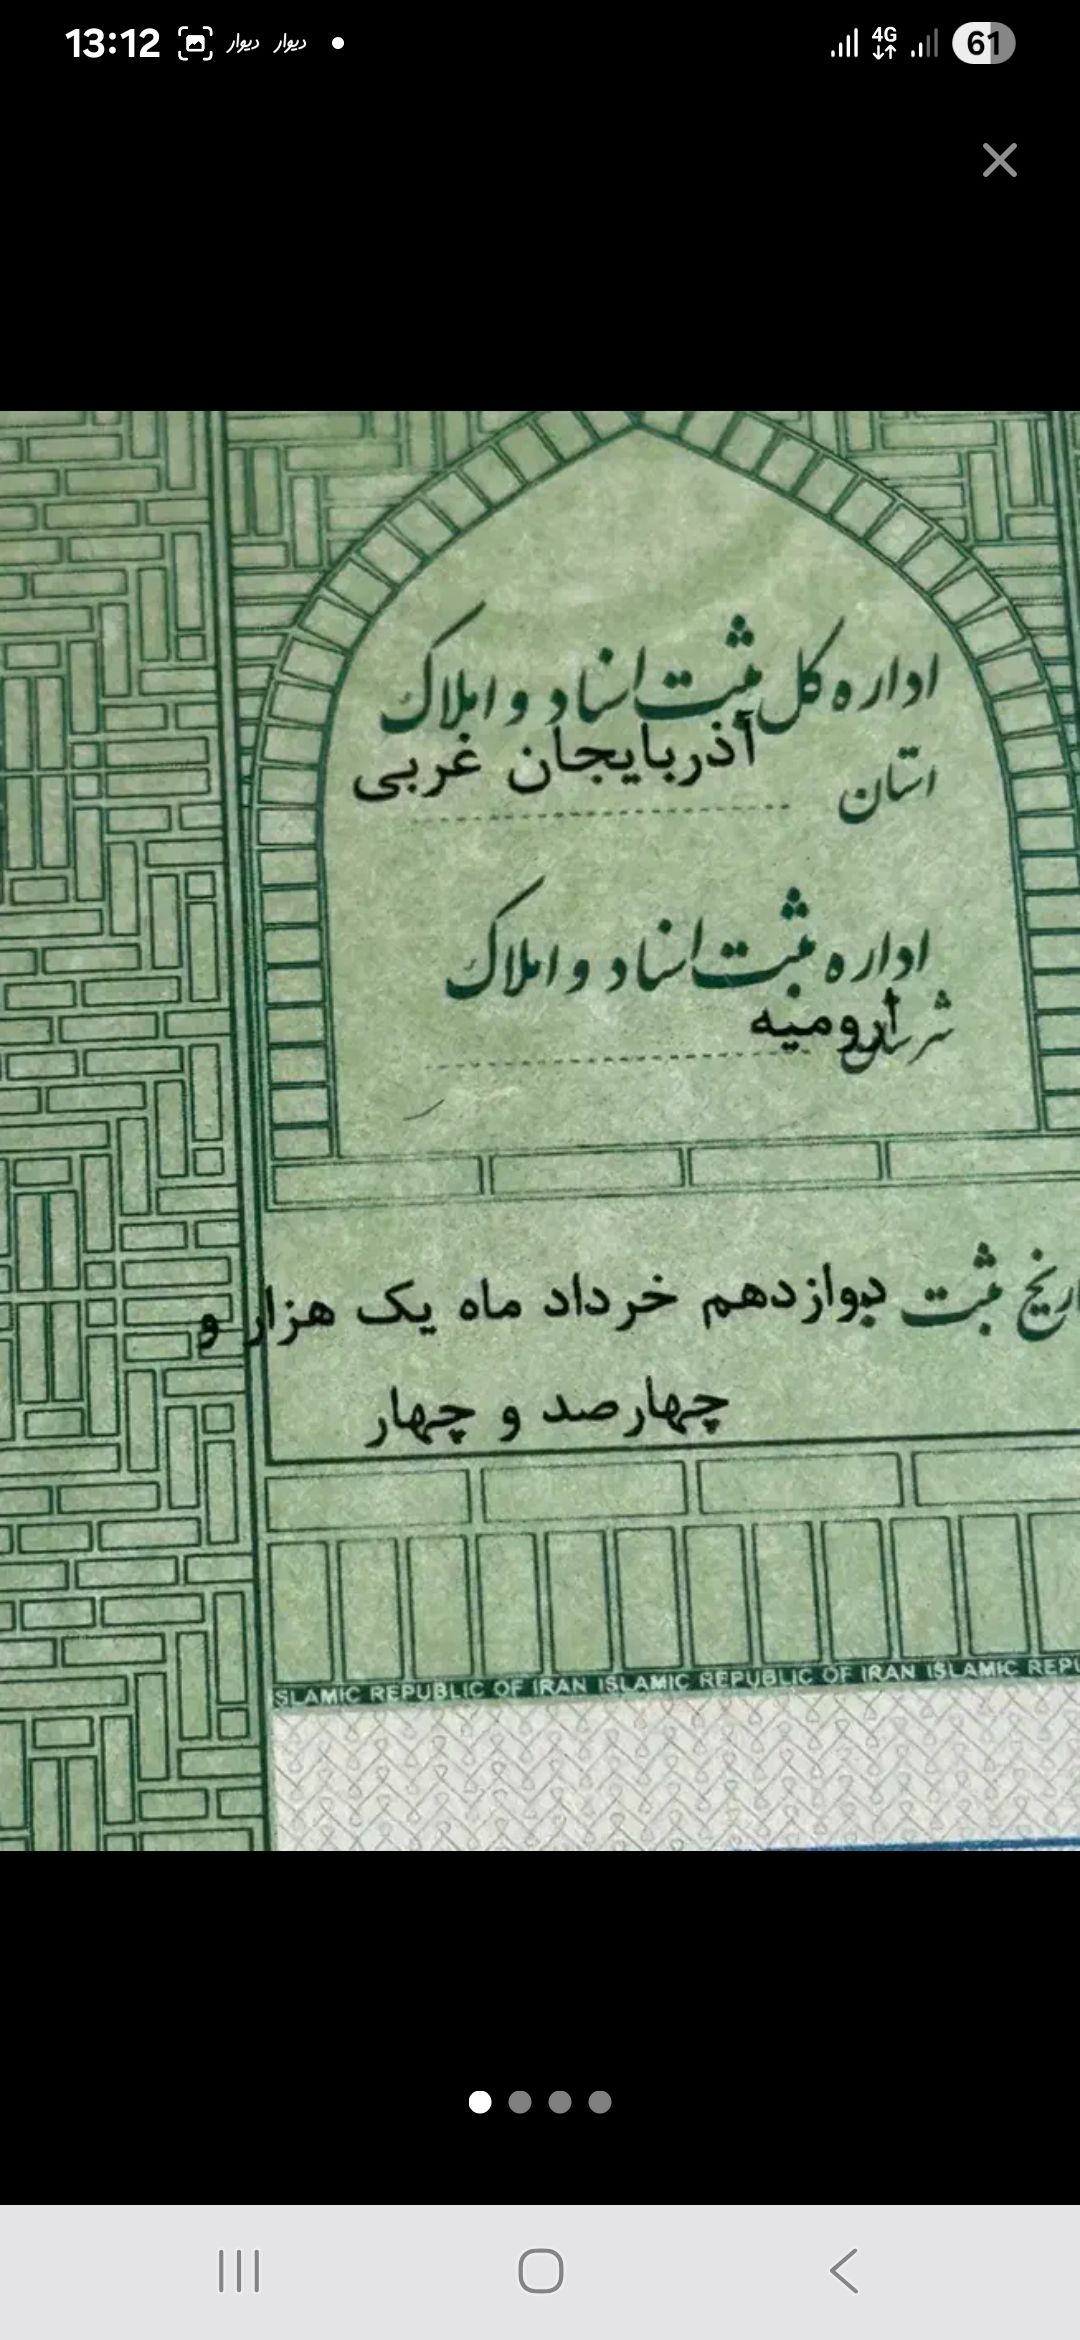 13:12 دیوار دیوار 4G 61
اداره کل ثبت اسناد و املاک
استان آذربایجان غربی
اداره ثبت اسناد و املاک
شهرستان ارومیه
اریخ ثبت دوازدهم خرداد ماه یک هزار و
چهارصد و چهار
SLAMIC REPUBLIC OF IRAN ISLAMIC REPUBLIC OF IRAN ISLAMIC REPU